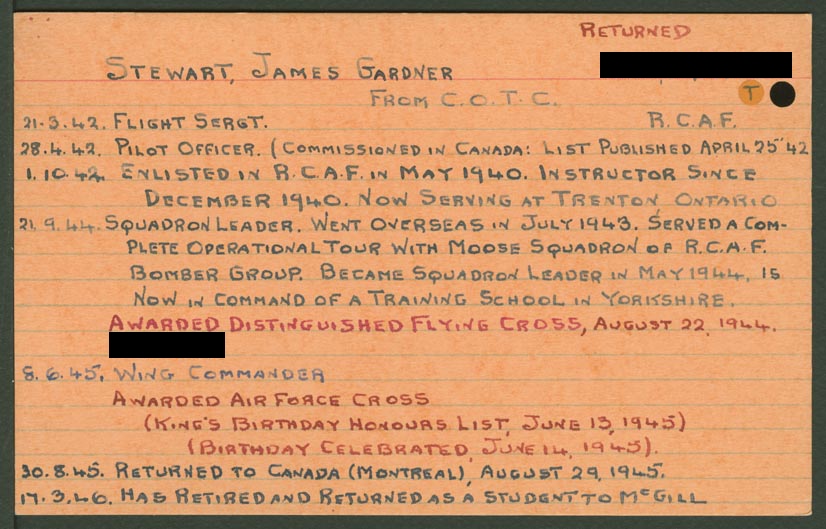 RETURNED
STEWART, JAMES GARDNER
FROM C.O.T.C.
T
21.3.42. FLIGHT SERGT. R.C.A.F.
28.4.42. PILOT OFFICER. (COMMISSIONED IN CANADA: LIST PUBLISHED APRIL 25 '42
1.10.42. ENLISTED IN R.C.A.F. IN MAY 1940. INSTRUCTOR SINCE
DECEMBER 1940. NOW SERVING AT TRENTON ONTARIO
21.9.44. SQUADRON LEADER. WENT OVERSEAS IN JULY 1943. SERVED A COM-
PLETE OPERATIONAL TOUR WITH MOOSE SQUADRON OF R.C.A.F.
BOMBER GROUP. BECAME SQUADRON LEADER IN MAY 1944, IS
NOW IN COMMAND OF A TRAINING SCHOOL IN YORKSHIRE.
AWARDED DISTINGUISHED FLYING CROSS, AUGUST 22, 1944.
8.6.45. WING COMMANDER
AWARDED AIR FORCE CROSS
(KING'S BIRTHDAY HONOURS LIST, JUNE 13, 1945)
(BIRTHDAY CELEBRATED, JUNE 14, 1945).
30.8.45. RETURNED TO CANADA (MONTREAL), AUGUST 29, 1945.
17.3.46. HAS RETIRED AND RETURNED AS A STUDENT TO MCGILL